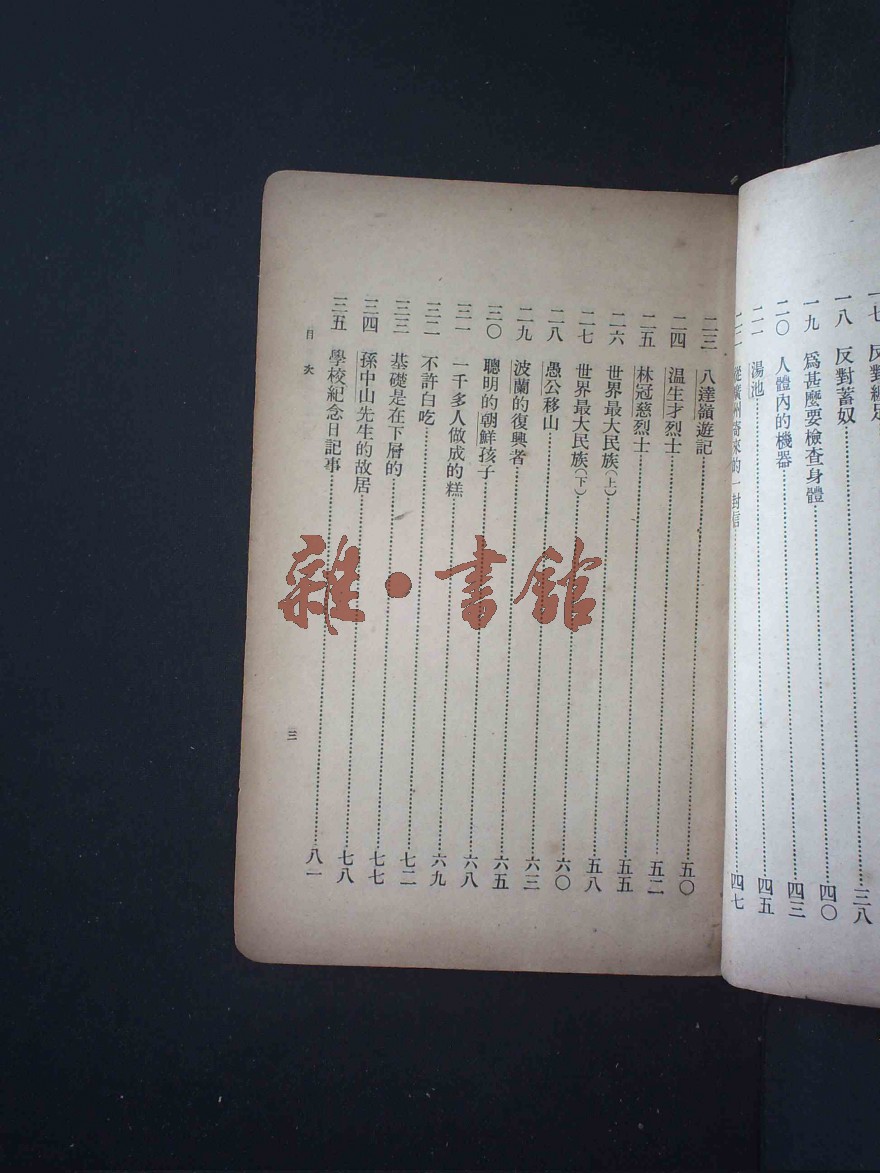 一七 反對纏足
一八 反對蓄奴……三八
一九 爲甚麼要檢查身體……四〇
二〇 人體內的機器……四三
二一 湯池……四五
二二 從廣州寄來的一封信……四七
二三 八達嶺遊記……五〇
二四 温生才烈士……五二
二五 林冠慈烈士……五五
二六 世界最大民族（上）……五八
二七 世界最大民族（下）……六〇
二八 愚公移山……六三
二九 波蘭的復興者……六五
三〇 聰明的朝鮮孩子……六八
三一 一千多人做成的糕……六九
三二 不許白吃……七二
三三 基礎是在下層的……七七
三四 孫中山先生的故居……七八
三五 學校紀念日記事……八一
目次
三
雜·書館